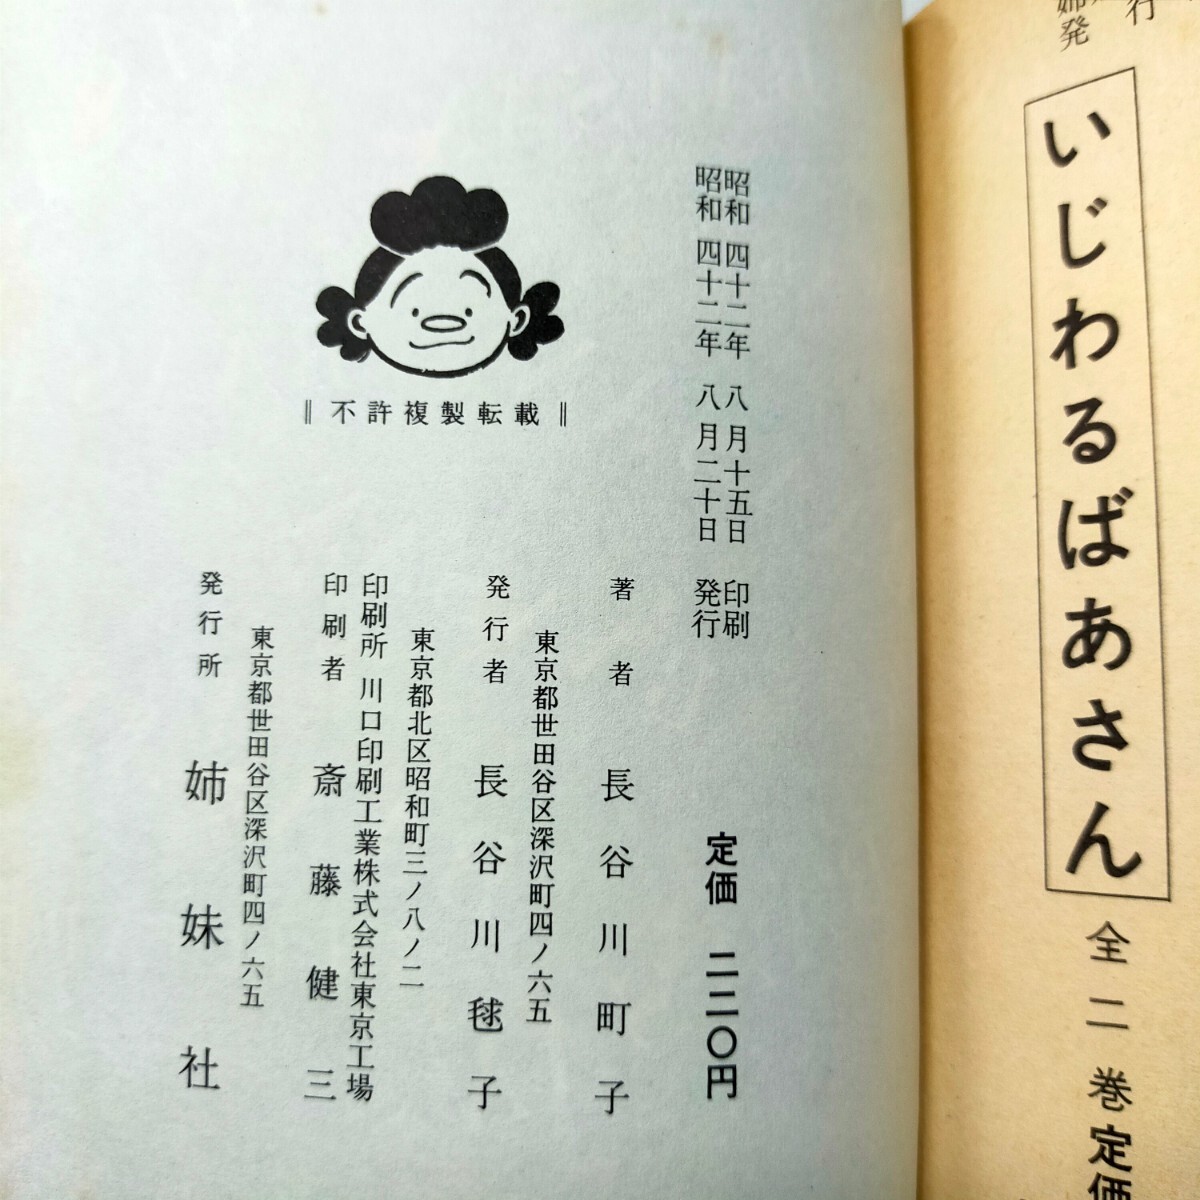 行
姉発
いじわるばあさん
全二巻定価
昭和四十二年八月十五日 印刷
昭和四十二年八月二十日 発行
定価 二二〇円
著者 長谷川町子
東京都世田谷区深沢町四ノ六五
発行者 長谷川毬子
東京都北区昭和町三ノ八ノ二
印刷所 川口印刷工業株式会社東京工場
印刷者 斎藤健三
東京都世田谷区深沢町四ノ六五
発行所 姉妹社
‖不許複製転載‖